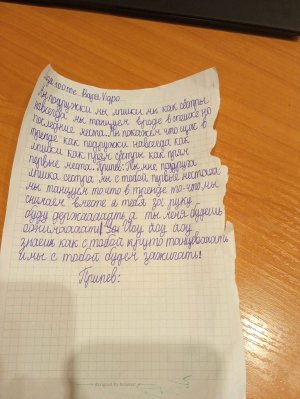 Мы подружки мы лпшки мы как сёстры
навсегда мы танцуем вроде в тишке но
последние места. Мы покажем что щас в
тренде как подружки навсегда как
лпшки как прям сёстры как прям
первые места. Припев: Ты мне подруга
лпшка сестра мы с тобой первые места да
мы танцуем то что в тренде то-что мы
снимаем вместе я тебя за руку
буду держаааать а ты меня будешь
обнимаааать! Уоу уоу уоу
знаешь как с тобой круто танцеваааать
и мы с тобой будем зажигать!
Припев:
designed by